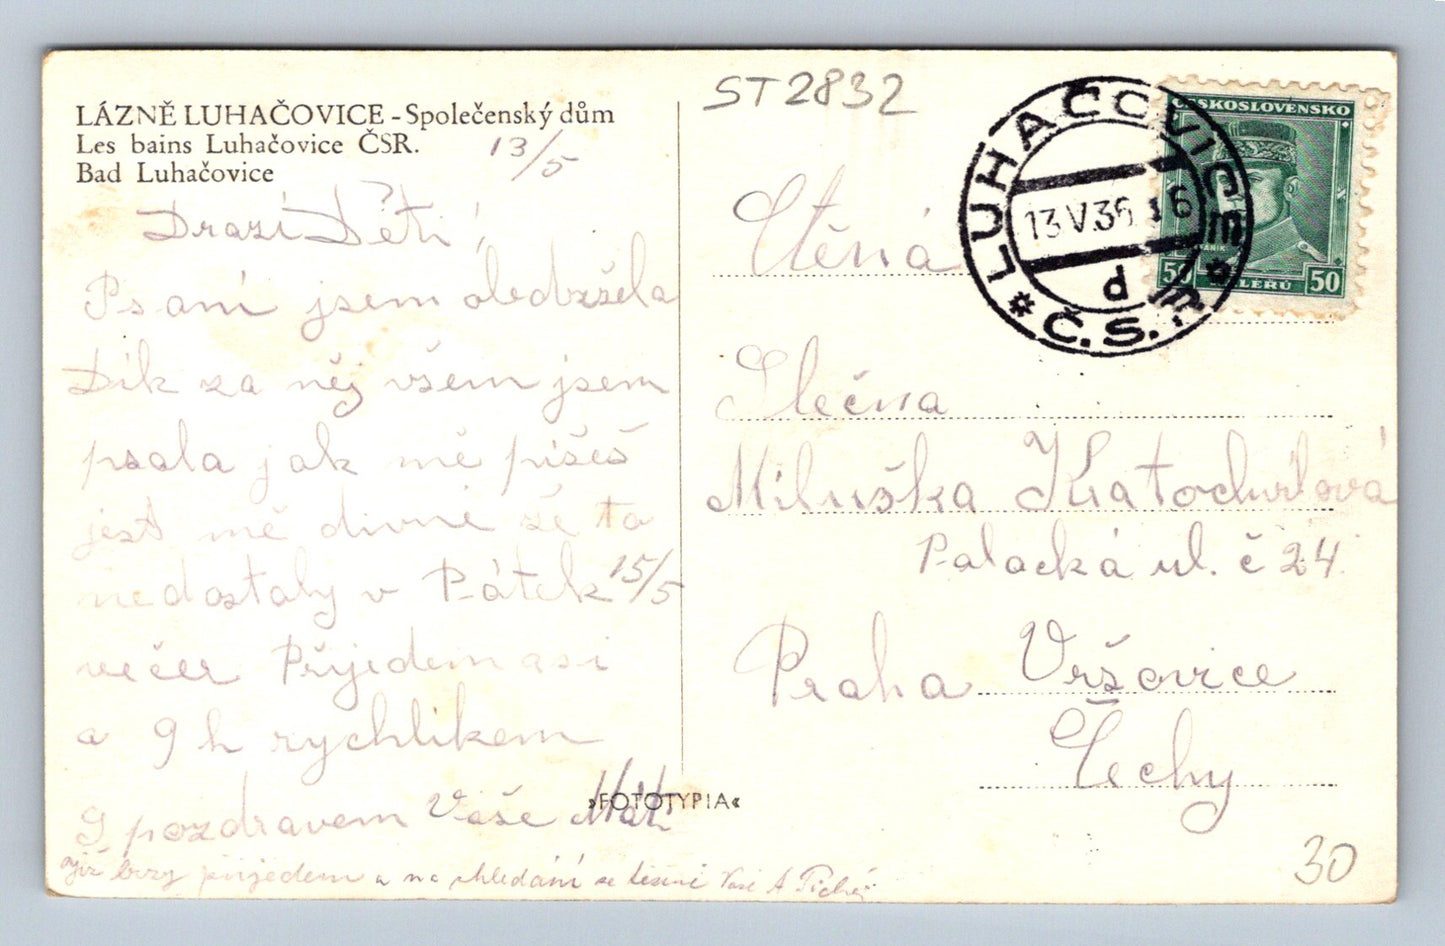 LÁZNĚ LUHAČOVICE - Společenský dům
Les bains Luhačovice ČSR.
Bad Luhačovice
13/5
Drazí Děti!
Psaní jsem obdržela
Dík za něj všem jsem
psala jak mě píšeš
jest mě divné že to
nedostaly v Pátek 15/5
večer Přijedem asi
a 9 h rychlíkem
S pozdravem Vaše Máti
již brzy přijedem a na shledání se těšíme Vaše A
»FOTOTYPIA«
ST2832
LUHAČOVICE
13.V.36
d
Č.S.R.
ČESKOSLOVENSKO
50 HALERU 50
Ctěná
Slečna
Miluška Kratochvílová
Palacká ul. č 24.
Praha Vršovice
Čechy
30